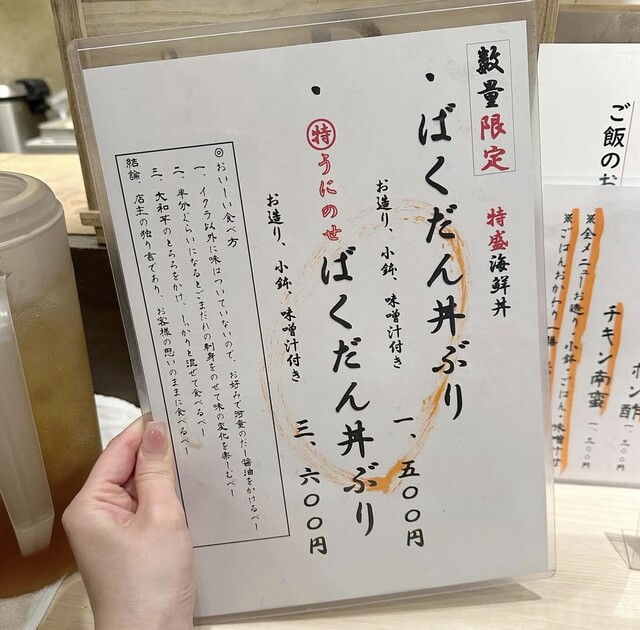 数量限定
特盛海鮮丼
・ばくだん丼ぶり
一、五〇〇円
お造り、小鉢、味噌汁付き
・特うにのせ ばくだん丼ぶり
三、六〇〇円
お造り、小鉢、味噌汁付き
◎おいしーい食べ方
一、イクラ以外に味はついていないので、お好みで河童のだし醤油をかけるべー
二、半分ぐらいになるとごまだれの刺身をのせて味の変化を楽しむべー
三、大和芋のとろろをかけ、しっかりと混ぜて食べるべー
結論、店主の独り言であり、お客様の思いのままに食べるべー
ご飯のお
ポン酢
チキン南蛮
一、二〇〇円
※全メニューお造り、小鉢、ごはん、味噌汁付
※ごはんおかわり一膳